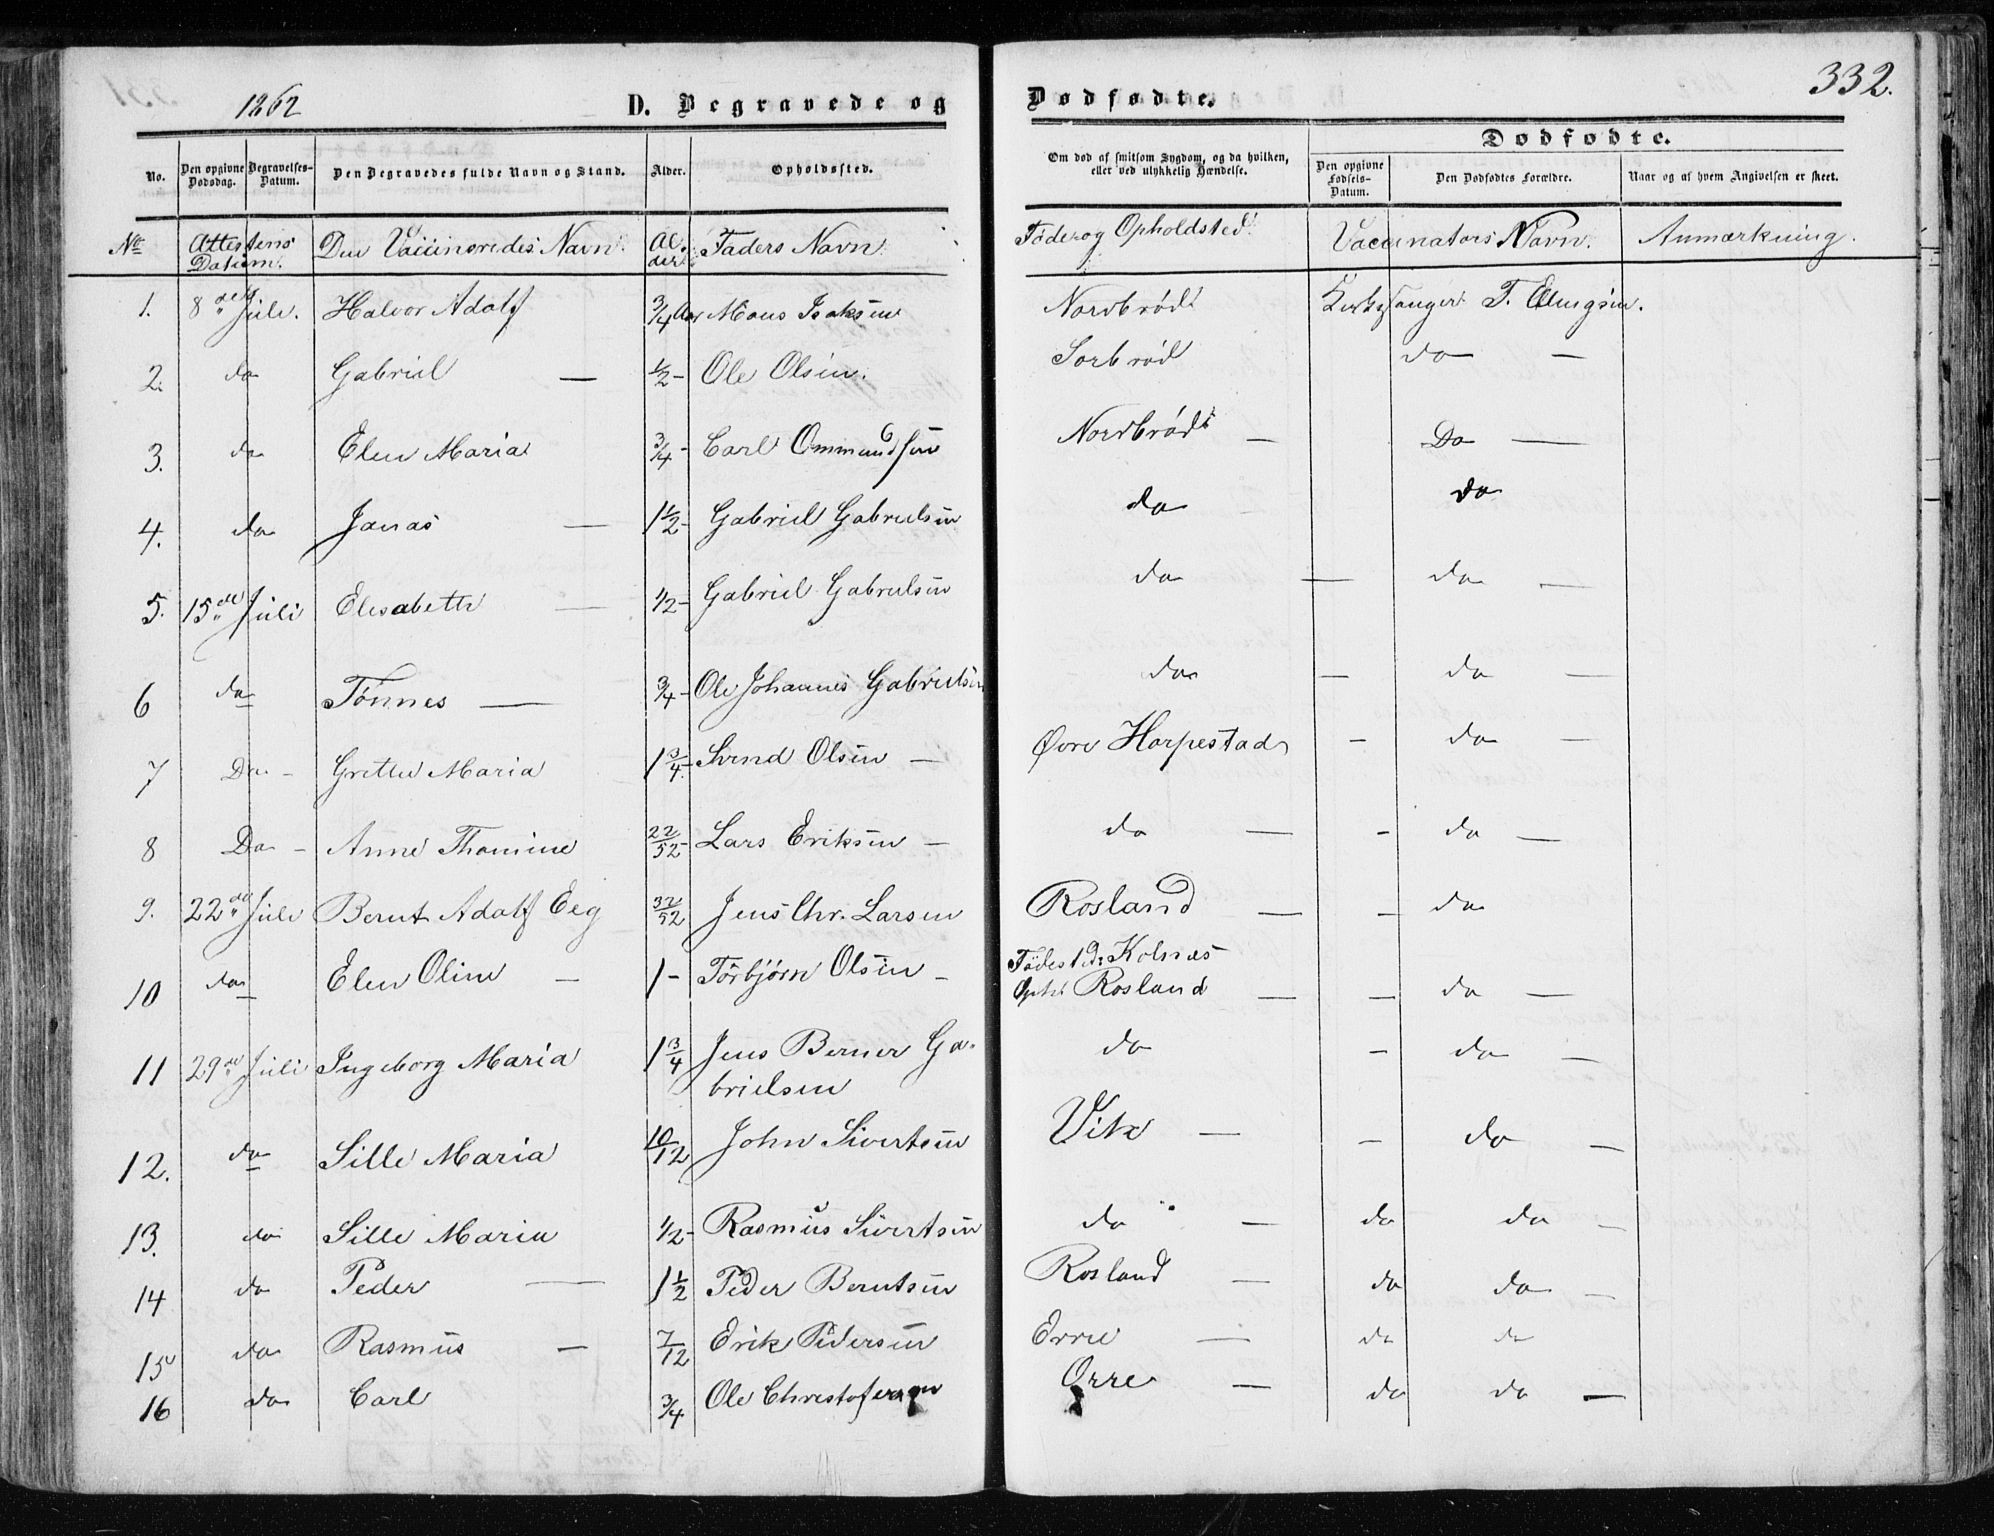 1862 D. Begravede og Dødfødte. 332.
Dødfødte.
No. Den opgivne Dødsdag. Begravelses-Datum. Den Begravedes fulde Navn og Stand. Alder. Opholdssted. Om død af smitsom Sygdom, og da hvilken, eller ved ulykkelig Hændelse. Den opgivne Fødsels-Datum. Den Dødfødtes Forældre. Naar og af hvem Angivelsen er skeet.
No Attestens Datum. Den Vaccineredes Navn. Alder Faders Navn. Føde og Opholdsted. Vaccinators Navn. Anmærkning.
1. 8de Juli. Halvor Adolf 3/4 Aar Mons Isaksen Nordbrødt Kirkesanger T.
2. do Gabriel — 1/2 - Ole Olsen. Sorbrød do —
3. do Elen Maria 3/4 - Carl Ommundsen Nordbrødt — Do —
4. do Jonas — 1 1/2 - Gabriel Gabrielsen do do
5. 15de Juli Elisabeth — 1/2 - Gabriel Gabrielsen do — do —
6 do Tønnes — 3/4 - Ole Johannes Gabrielsen do — do —
7 Do - Grethe Maria 1 3/4 - Svend Olsen — Øvre Harpestad - do —
8 Do - Anne Thomine 22/52 - Lars Eriksen — do — - do —
9. 22de Juli Bernt Adolf Eeg 32/52 Jens Chr. Larsen Rosland — - do
10 do Elen Oline — 1 - Torbjørn Olsen — Fødested: Kolnes
Oph: Rosland — - do —
11 29de Juli Ingeborg Maria 1 3/4 Jens Berner Ga- do - do —
brielsen
12. do Sille Maria 10/12 John Sivertsen Vik — - do —
13. do Sille Maria 1/2 - Rasmus Sivertsen do — do do —
14 do Peder — 1 1/2 Peder Berntsen Rosland — do do —
15 do Rasmus — 7/12 Erik Pedersen Erre — do do
16 do Carl 3/4 Ole Christofersen Orre — do do —